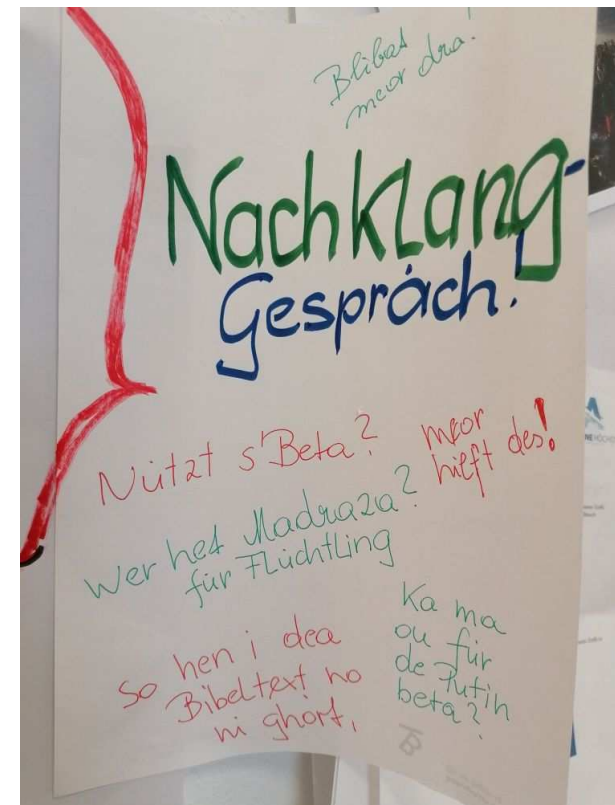 Blibat
meor dra!
Nachklang-
Gespräch!
Nützt s'Beta?
meor
hilft des!
Wer het Madraza?
für Flüchtling
So hen i dea
Bibeltext no
ni ghört,
Ka ma
ou für
de Putin
beta?